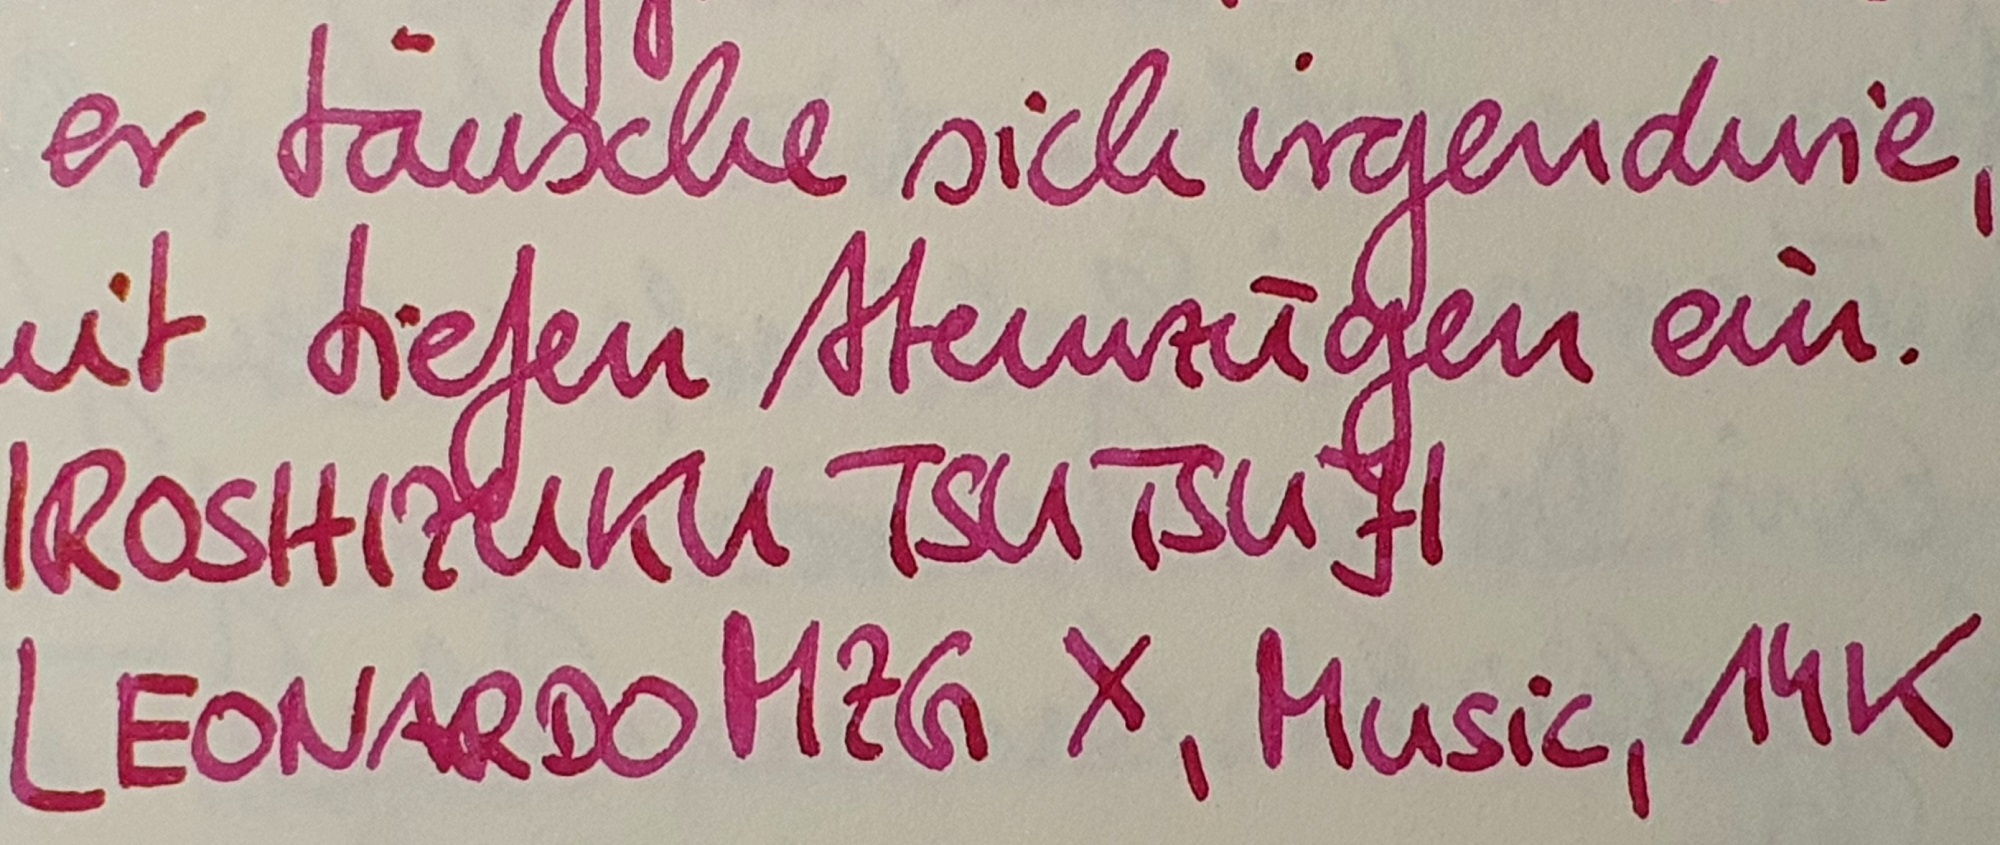 er täusche sich irgendwie,
mit tiefen Atemzügen ein.
IROSHIZUKU TSUTSUJI
LEONARDO MZG X, Music, 14K